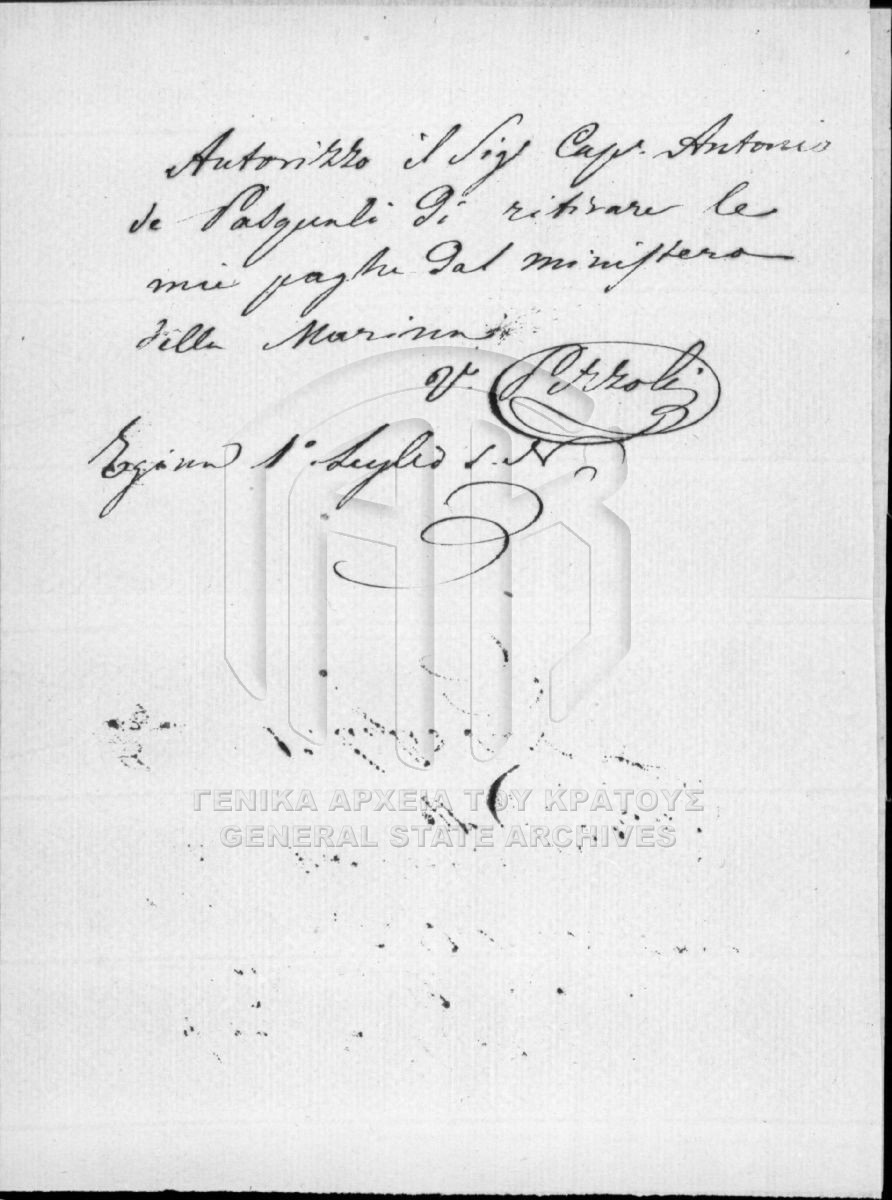 Autorizzo il Sigr Capn. Antonio
de Pasquali di ritirare le
mie paghe dal ministero
della Marina
V. Pizzoli
Egina 1° Luglio S. N.
ΓΕΝΙΚΑ ΑΡΧΕΙΑ ΤΟΥ ΚΡΑΤΟΥΣ
GENERAL STATE ARCHIVES